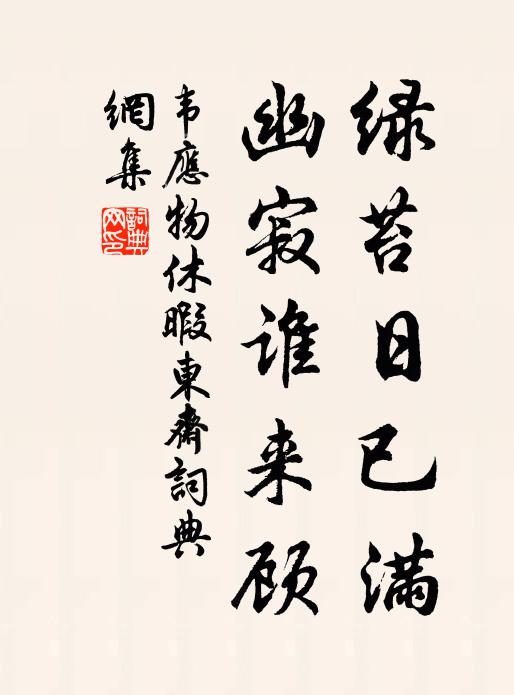 绿苔日已满
幽寂谁来顾
韦應物休暇東齋詞典
網集
詞典
网印